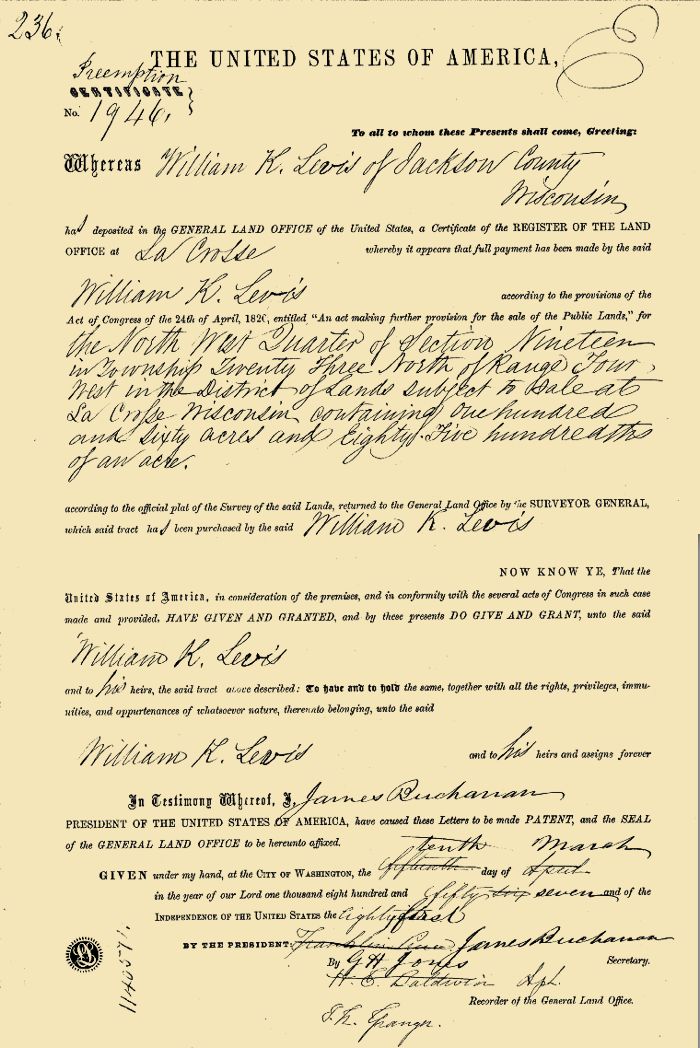 236.
THE UNITED STATES OF AMERICA,
Preemption
CERTIFICATE
No. 1946.
To all to whom these Presents shall come, Greeting:
Whereas William K. Levis of Jackson County
Wisconsin
has deposited in the GENERAL LAND OFFICE of the United States, a Certificate of the REGISTER OF THE LAND
OFFICE at La Crosse whereby it appears that full payment has been made by the said
William K. Levis according to the provisions of the
Act of Congress of the 24th of April, 1820, entitled "An act making further provision for the sale of the Public Lands," for
the North West Quarter of Section Nineteen
in Township Twenty Three North of Range Four,
West in the District of Lands subject to Sale at
La Crosse Wisconsin containing One hundred
and Sixty acres and Eighty-Five hundredths
of an acre.
according to the official plat of the Survey of the said Lands, returned to the General Land Office by the SURVEYOR GENERAL,
which said tract has been purchased by the said William K. Levis
NOW KNOW YE, That the
United States of America, in consideration of the premises, and in conformity with the several acts of Congress in such case
made and provided, HAVE GIVEN AND GRANTED, and by these presents DO GIVE AND GRANT, unto the said
William K. Levis
and to his heirs, the said tract above described: To have and to hold the same, together with all the rights, privileges, immu-
nities, and oppurtenances of whatsoever nature, thereunto belonging, unto the said
William K. Levis and to his heirs and assigns forever
In Testimony Whereof, I, James Buchanan
PRESIDENT OF THE UNITED STATES OF AMERICA, have caused these Letters to be made PATENT, and the SEAL
of the GENERAL LAND OFFICE to be hereunto affixed.
tenth March
GIVEN under my hand, at the CITY OF WASHINGTON, the fifteenth day of April
in the year of our Lord one thousand eight hundred and fifty six seven and of the
INDEPENDENCE OF THE UNITED STATES the Eighty first
BY THE PRESIDENT: Franklin Pierce James Buchanan
By G H Jones Secretary.
H. E. Baldwin
Recorder of the General Land Office.
J. N. Granger.
1140571.